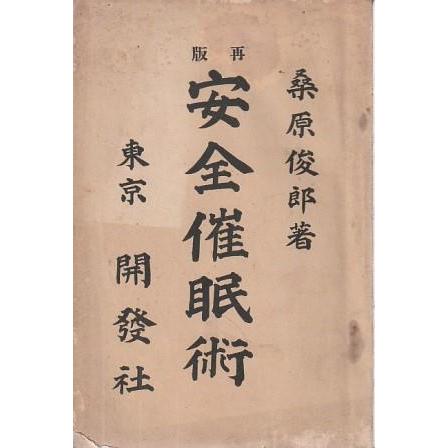 桑原俊郎著
再版
安全催眠術
東京
開發社